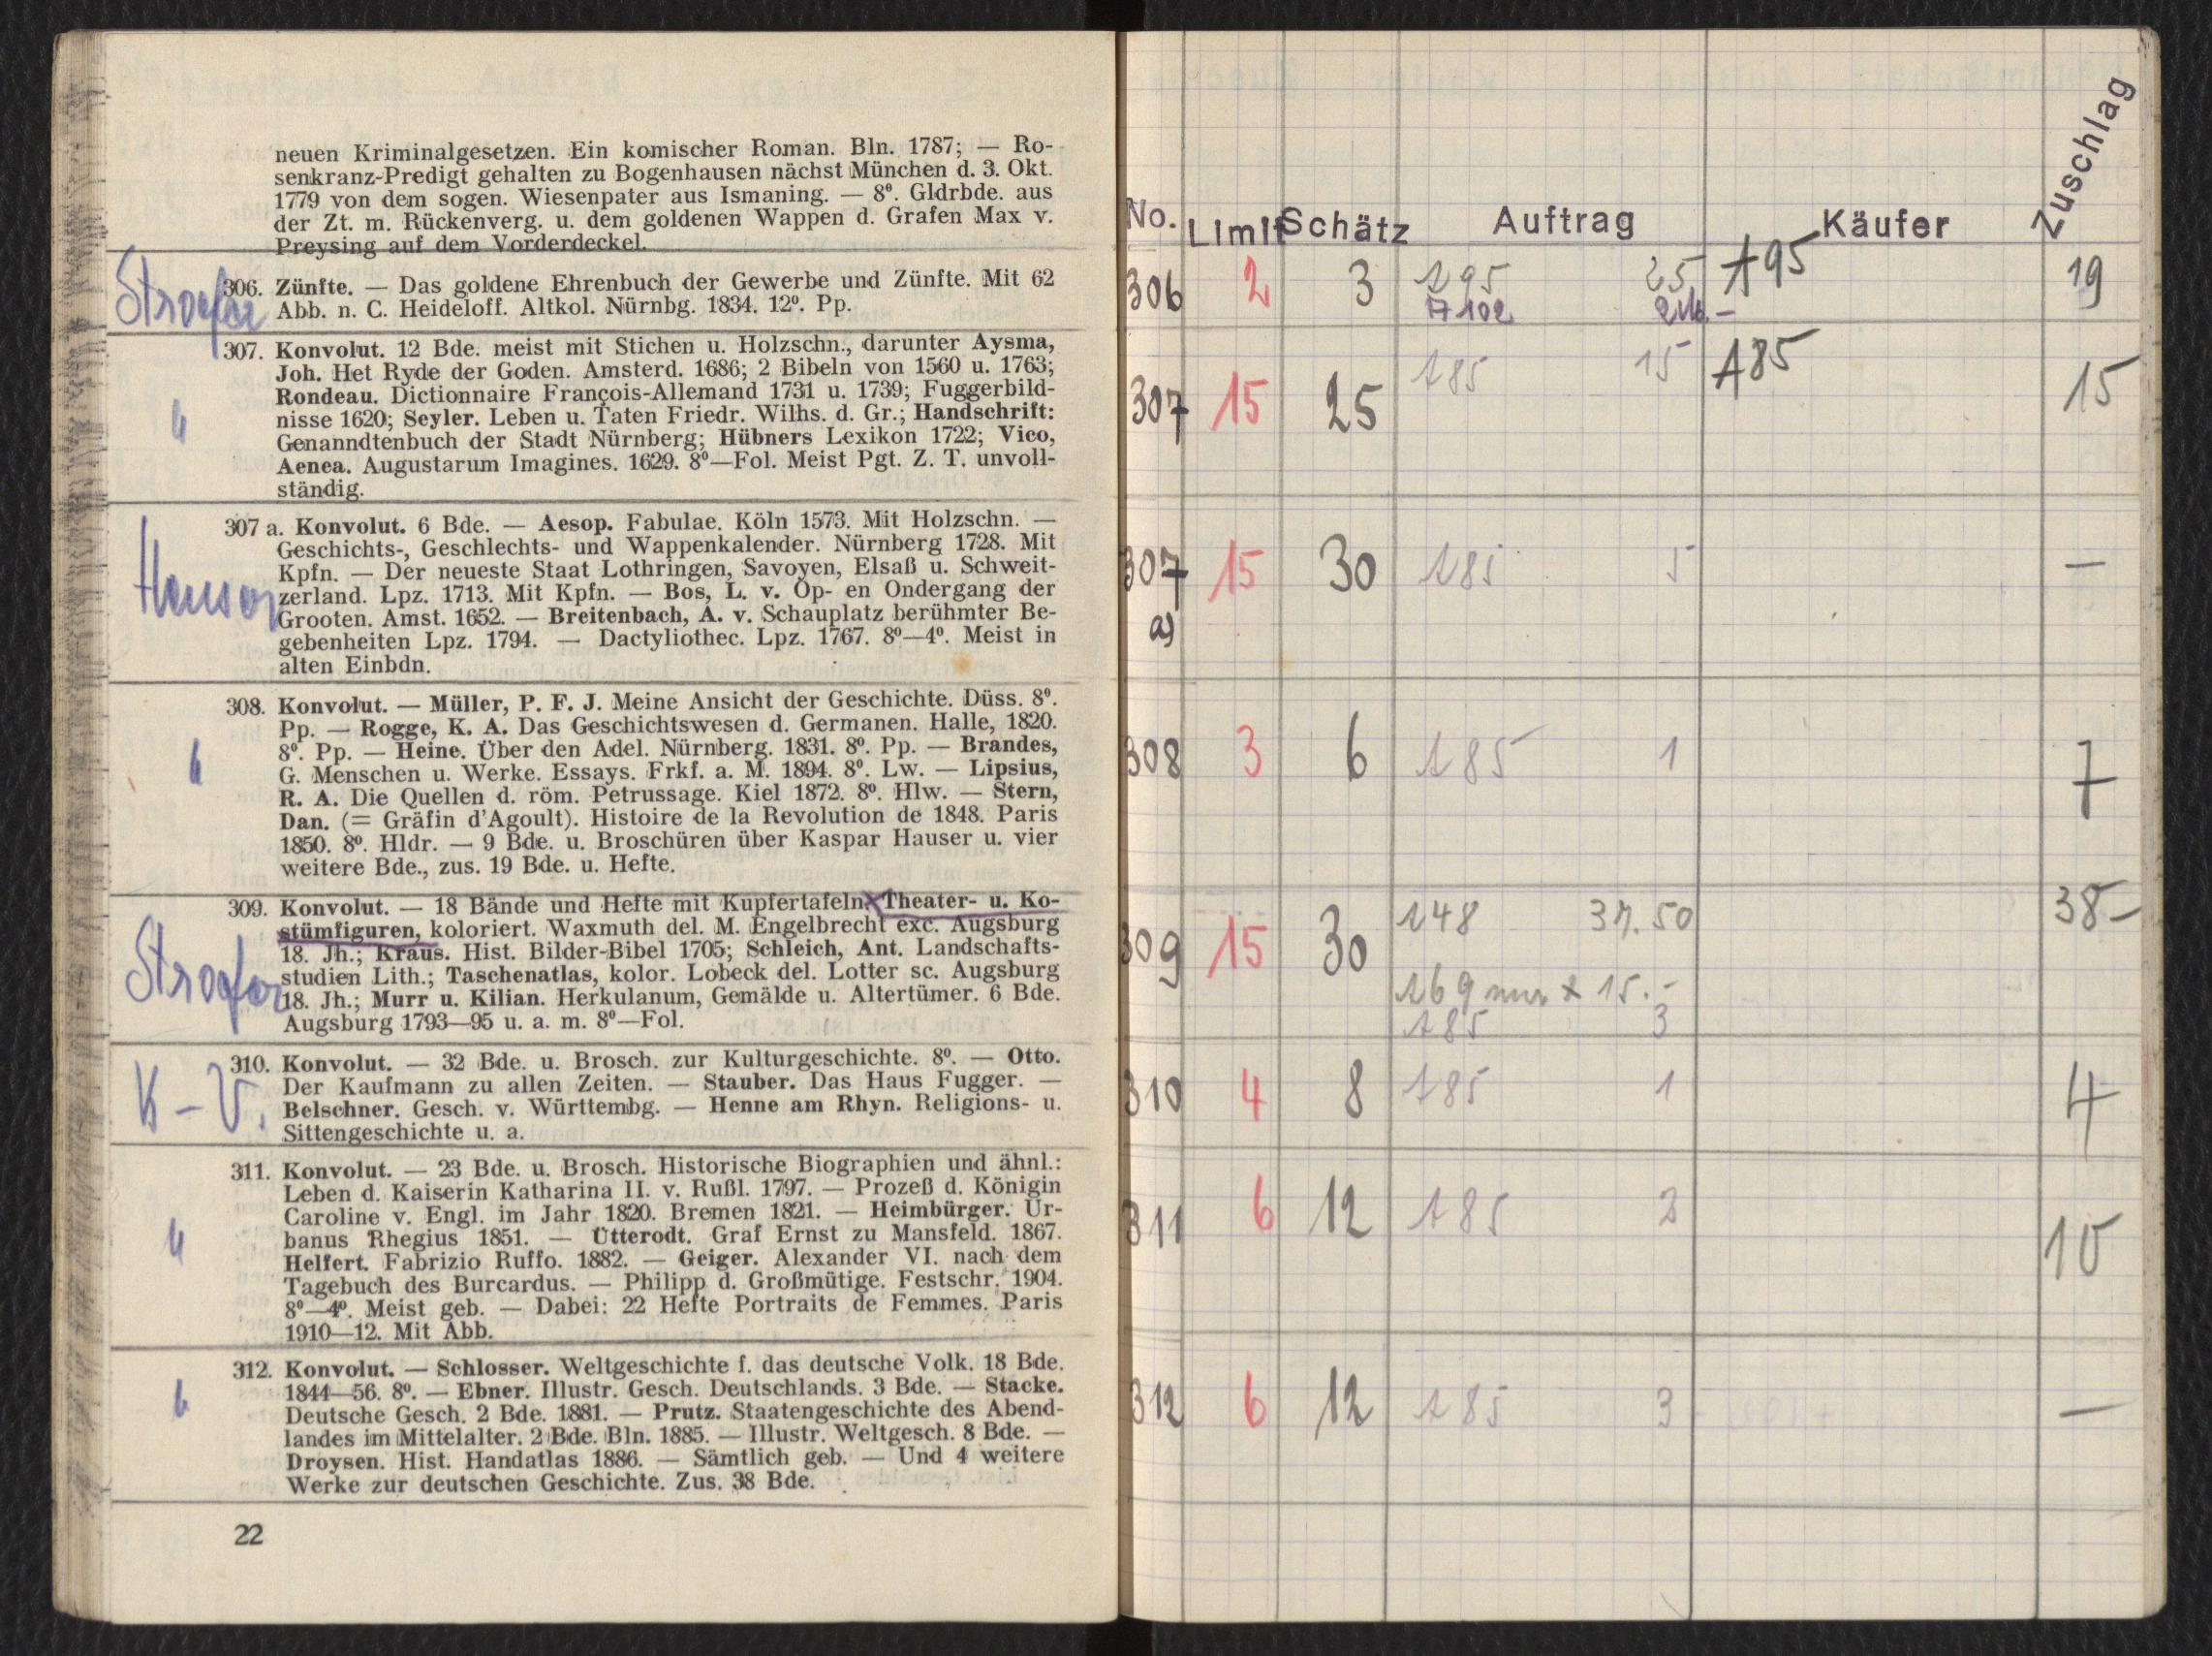 neuen Kriminalgesetzen. Ein komischer Roman. Bln. 1787; — Ro-
senkranz-Predigt gehalten zu Bogenhausen nächst München d. 3. Okt.
1779 von dem sogen. Wiesenpater aus Ismaning. — 8⁰. Gldrbde. aus
der Zt. m. Rückenverg. u. dem goldenen Wappen d. Grafen Max v.
Preysing auf dem Vorderdeckel.
Stroefer
306. Zünfte. — Das goldene Ehrenbuch der Gewerbe und Zünfte. Mit 62
Abb. n. C. Heideloff. Altkol. Nürnbg. 1834. 12⁰. Pp.
307. Konvolut. 12 Bde. meist mit Stichen u. Holzschn., darunter Aysma,
Joh. Het Ryde der Goden. Amsterd. 1686; 2 Bibeln von 1560 u. 1763;
Rondeau. Dictionnaire François-Allemand 1731 u. 1739; Fuggerbild-
nisse 1620; Seyler. Leben u. Taten Friedr. Wilhs. d. Gr.; Handschrift:
Genanndtenbuch der Stadt Nürnberg; Hübners Lexikon 1722; Vico,
Aenea. Augustarum Imagines. 1629. 8⁰—Fol. Meist Pgt. Z. T. unvoll-
ständig.
307 a. Konvolut. 6 Bde. — Aesop. Fabulae. Köln 1573. Mit Holzschn. —
Geschichts-, Geschlechts- und Wappenkalender. Nürnberg 1728. Mit
Kpfn. — Der neueste Staat Lothringen, Savoyen, Elsaß u. Schweit-
zerland. Lpz. 1713. Mit Kpfn. — Bos, L. v. Op- en Ondergang der
Grooten. Amst. 1652. — Breitenbach, A. v. Schauplatz berühmter Be-
gebenheiten Lpz. 1794. — Dactyliothec. Lpz. 1767. 8⁰—4⁰. Meist in
alten Einbdn.
308. Konvolut. — Müller, P. F. J. Meine Ansicht der Geschichte. Düss. 8⁰.
Pp. — Rogge, K. A. Das Geschichtswesen d. Germanen. Halle, 1820.
8⁰. Pp. — Heine. Über den Adel. Nürnberg. 1831. 8⁰. Pp. — Brandes,
G. Menschen u. Werke. Essays. Frkf. a. M. 1894. 8⁰. Lw. — Lipsius,
R. A. Die Quellen d. röm. Petrussage. Kiel 1872. 8⁰. Hlw. — Stern,
Dan. (= Gräfin d'Agoult). Histoire de la Revolution de 1848. Paris
1850. 8⁰. Hldr. — 9 Bde. u. Broschüren über Kaspar Hauser u. vier
weitere Bde., zus. 19 Bde. u. Hefte.
Stroefer
309. Konvolut. — 18 Bände und Hefte mit Kupfertafeln: Theater- u. Ko-
stümfiguren, koloriert. Waxmuth del. M. Engelbrecht exc. Augsburg
18. Jh.; Kraus. Hist. Bilder-Bibel 1705; Schleich, Ant. Landschafts-
studien Lith.; Taschenatlas, kolor. Lobeck del. Lotter sc. Augsburg
18. Jh.; Murr u. Kilian. Herkulanum, Gemälde u. Altertümer. 6 Bde.
Augsburg 1793—95 u. a. m. 8⁰—Fol.
K - V.
310. Konvolut. — 32 Bde. u. Brosch. zur Kulturgeschichte. 8⁰. — Otto.
Der Kaufmann zu allen Zeiten. — Stauber. Das Haus Fugger. —
Belschner. Gesch. v. Württembg. — Henne am Rhyn. Religions- u.
Sittengeschichte u. a.
311. Konvolut. — 23 Bde. u. Brosch. Historische Biographien und ähnl.:
Leben d. Kaiserin Katharina II. v. Rußl. 1797. — Prozeß d. Königin
Caroline v. Engl. im Jahr 1820. Bremen 1821. — Heimbürger. Ur-
banus Rhegius 1851. — Ütterodt. Graf Ernst zu Mansfeld. 1867.
Helfert. Fabrizio Ruffo. 1882. — Geiger. Alexander VI. nach dem
Tagebuch des Burcardus. — Philipp d. Großmütige. Festschr. 1904.
8⁰—4⁰. Meist geb. — Dabei: 22 Hefte Portraits de Femmes. Paris
1910—12. Mit Abb.
312. Konvolut. — Schlosser. Weltgeschichte f. das deutsche Volk. 18 Bde.
1844—56. 8⁰. — Ebner. Illustr. Gesch. Deutschlands. 3 Bde. — Stacke.
Deutsche Gesch. 2 Bde. 1881. — Prutz. Staatengeschichte des Abend-
landes im Mittelalter. 2 Bde. Bln. 1885. — Illustr. Weltgesch. 8 Bde. —
Droysen. Hist. Handatlas 1886. — Sämtlich geb. — Und 4 weitere
Werke zur deutschen Geschichte. Zus. 38 Bde.
22
No. Limit Schätz Auftrag Käufer Zuschlag
306 2 3 A95 25 A95 19
A 102
307 15 25 A85 15 A85 15
307 a) 15 30 A85 5 —
308 3 6 A85 1 7
309 15 30 A48 37.50 38-
A69 nur x 15.-
A85 3
310 4 8 A85 1 4
311 6 12 A85 2 10
312 6 12 A85 3 —